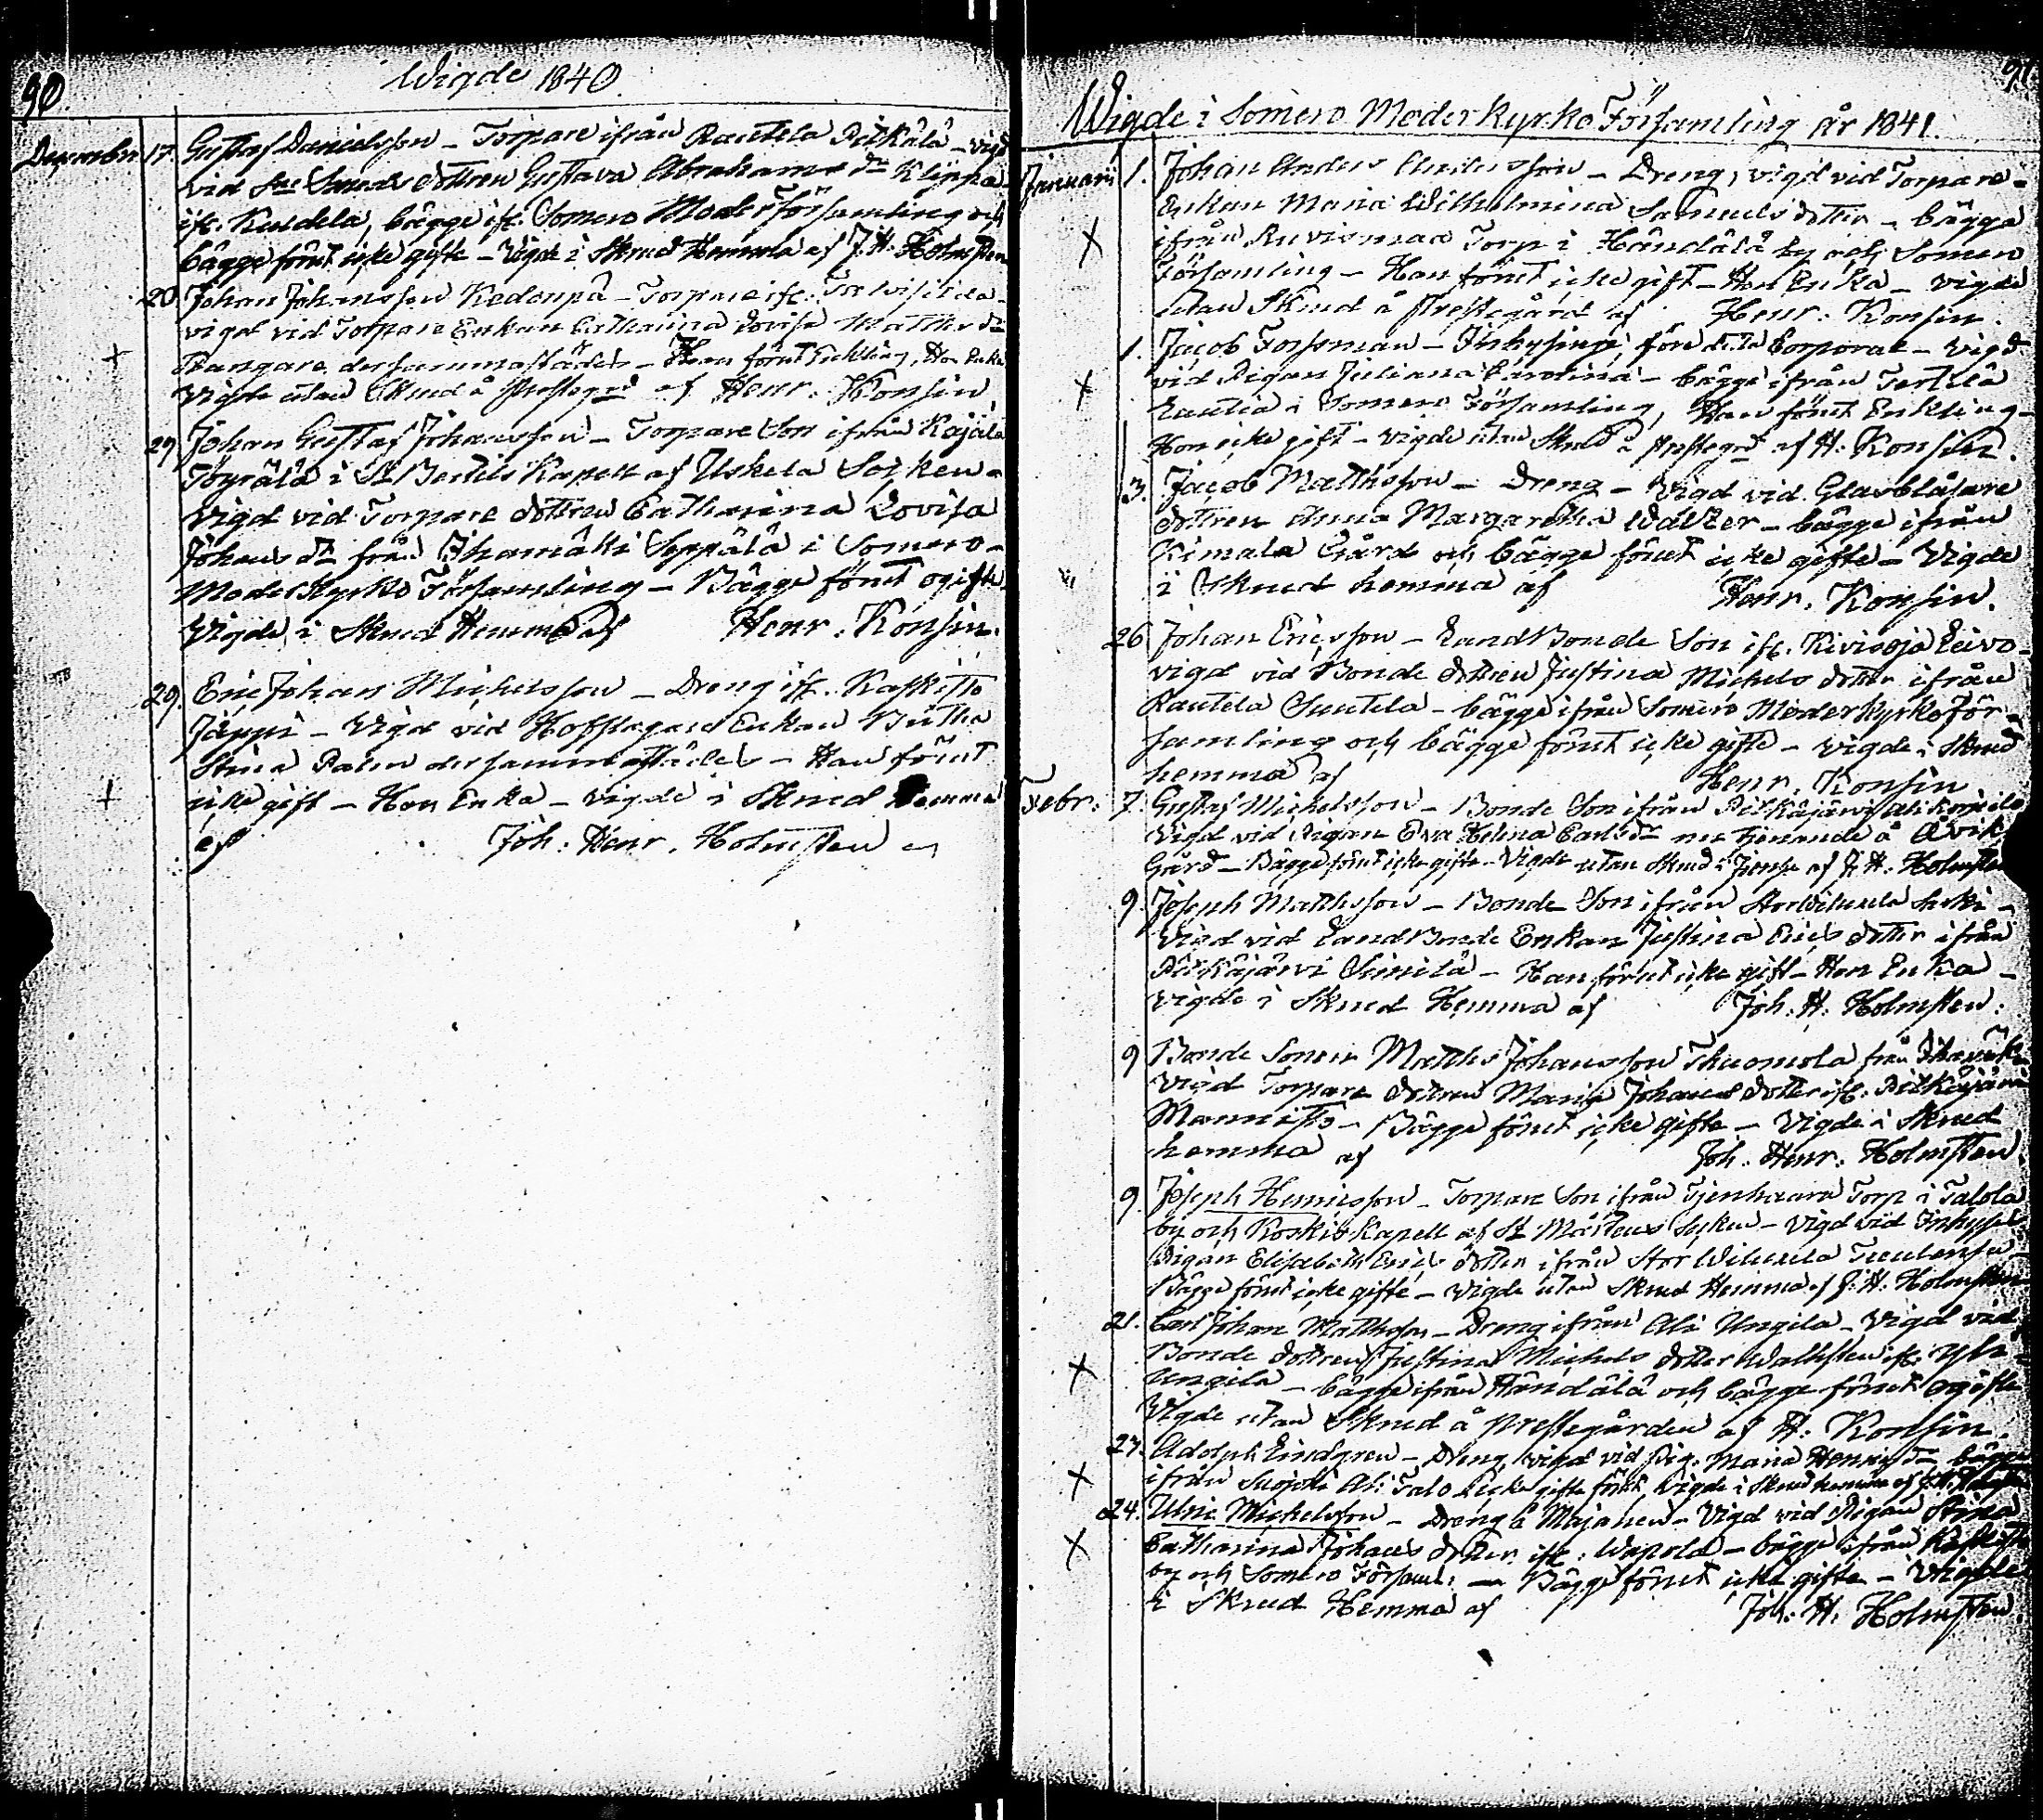 90.
Wigde 1840.
December 17. Gustaf Danielsson – Torpare ifrån Rautela Pitkälä – vigd
vid Sne Smeds dottren Gustava Abrahams dr Klippa
ifr. Kuldela, bägge ifr. Somero Moderförsamling och
bägge förut icke gifte – Vigde i Skrud Hemma af J. H. Holmsten
20 Johan Johansson Kedonpä – Torpare ifr. Torwisilda –
vigd vid Torpare Enkan Catharina Lovisa Matths dr
+ dersammastädes – Han förut Enkling, Hon Enka
Vigde utan Skrud å Prestegrd af Henr. Konsin
29 Johan Gustaf Johansson – Torpare Son ifrån Kajala
Töyrälä i St Bertils Kapell af Uskela Socken –
Vigd vid Torpare dottren Catharina Lovisa
Johans dr från Ihamäki Seppälä i Somero –
Moderkyrko Församling – Bägge förut ogifte
Vigde i Skrud Hemma af Henr. Konsin.
29. Eric Johan Michelsson – Dreng ifr. Kaskisto
Jäppi – Vigd vid Hofslagare Enkan
Stina Palin dersammastädes – Han förut
+ icke gift – Hon Enka – vigde i Skrud Hemma
af Joh. Henr. Holmsten
91.
Wigde i Somero Moderkyrko Församling År 1841.
Januarii 1. Johan Anders Andersson – Dreng, vigd vid Torpare –
Enkan Maria Wilhelmina Samuels dotter – bägge
X ifrån Ruvismaa Torp i Händälä by och Somero
Församling – Han förut icke gift – Hon Enka – vigde
utan Skrud å Prestegård af Henr. Konsin.
1. Jacob Forsman – Inhysing, före detta Corporal – vigd
X vid Pigan Juliana Carolina – bägge ifrån Terttilä
Rautia i Somero Församling, Han förut Enkling –
Hon icke gift – vigde utan Skrud å Prestegrd af H. Konsin.
3. Jacob Matthsson – Dreng – Vigd vid Glasblåsare
dottren Anna Margaretha Walter – bägge ifrån
Kimala Gård och bägge förut icke gifte – Vigde
i Skrud hemma af Henr. Konsin.
26 Johan Ericsson – LandBonde Son ifr. Kivisoja Leivo –
vigd vid Bonde dottren Justina Michels dotter ifrån
Rautela Suutela – bägge ifrån Somero Moderkyrko För-
samling och bägge förut icke gifte – vigde i Skrud
hemma af Henr. Konsin
Febr: 7. Gustaf Michelsson – Bonde Son ifrån Pitkäjärvi
Vigd vid Pigan Eva Helena Carls dr nu tjenande å Åvik
Gård – Bägge förut icke gifte – Vigde utan Skrud i af J. H. Holmsten
9. Joseph Matthsson – Bonde Son ifrån StorWiluxela –
Vigd vid LandBonde Enkan Justina Erics dotter ifrån
Pitkäjärvi Similä – Han förut icke gift – Hon Enka –
vigde i Skrud Hemma af Joh. H. Holmsten.
9 Bonde Sonen Matths Johansson Thuomola från
Vigd Torpare dottren Maria Johans dotter ifr. Pitkäjärvi
Mannisto – Bägge förut icke gifte – Vigde i Skrud
hemma af Joh. Henr. Holmsten.
9. Joseph Henricsson – Torpare Son ifrån Tjenhaara Torp i Talola
by och Koskis Kapell af St Mårtens Socken – Vigd vid Inhyses
Pigan Elisabeth Erics dotter ifrån Stor Wiluxela
Bägge förut icke gifte – Vigde utan Skrud Hemma af J. H. Holmsten
21. Carl Johan Matthsson – Dreng ifrån Ali Ungila – Vigd vid
X Bonde dottren Justina Michels dotter Wallsten ifr. Yli
Ungila – bägge ifrån Händälä och bägge förut ogifte
Vigde utan Skrud å Prestegården af H. Konsin.
23. Adolph Lindgren – Dreng vigd vid Pig. Maria Henrics dr bägge
X ifrån Suojoki Ali Talo icke gifte förut, Vigde i Skrud hemma af
24. Ulric Michelsson – Dreng å Majanen – Vigd vid Pigan Stina
X Catharina Johans dotter ifr. Wapola – bägge ifrån Kaskisto
by och Somero Församl: – Bägge förut icke gifte – Vigde
i Skrud Hemma af Joh. H. Holmsten.